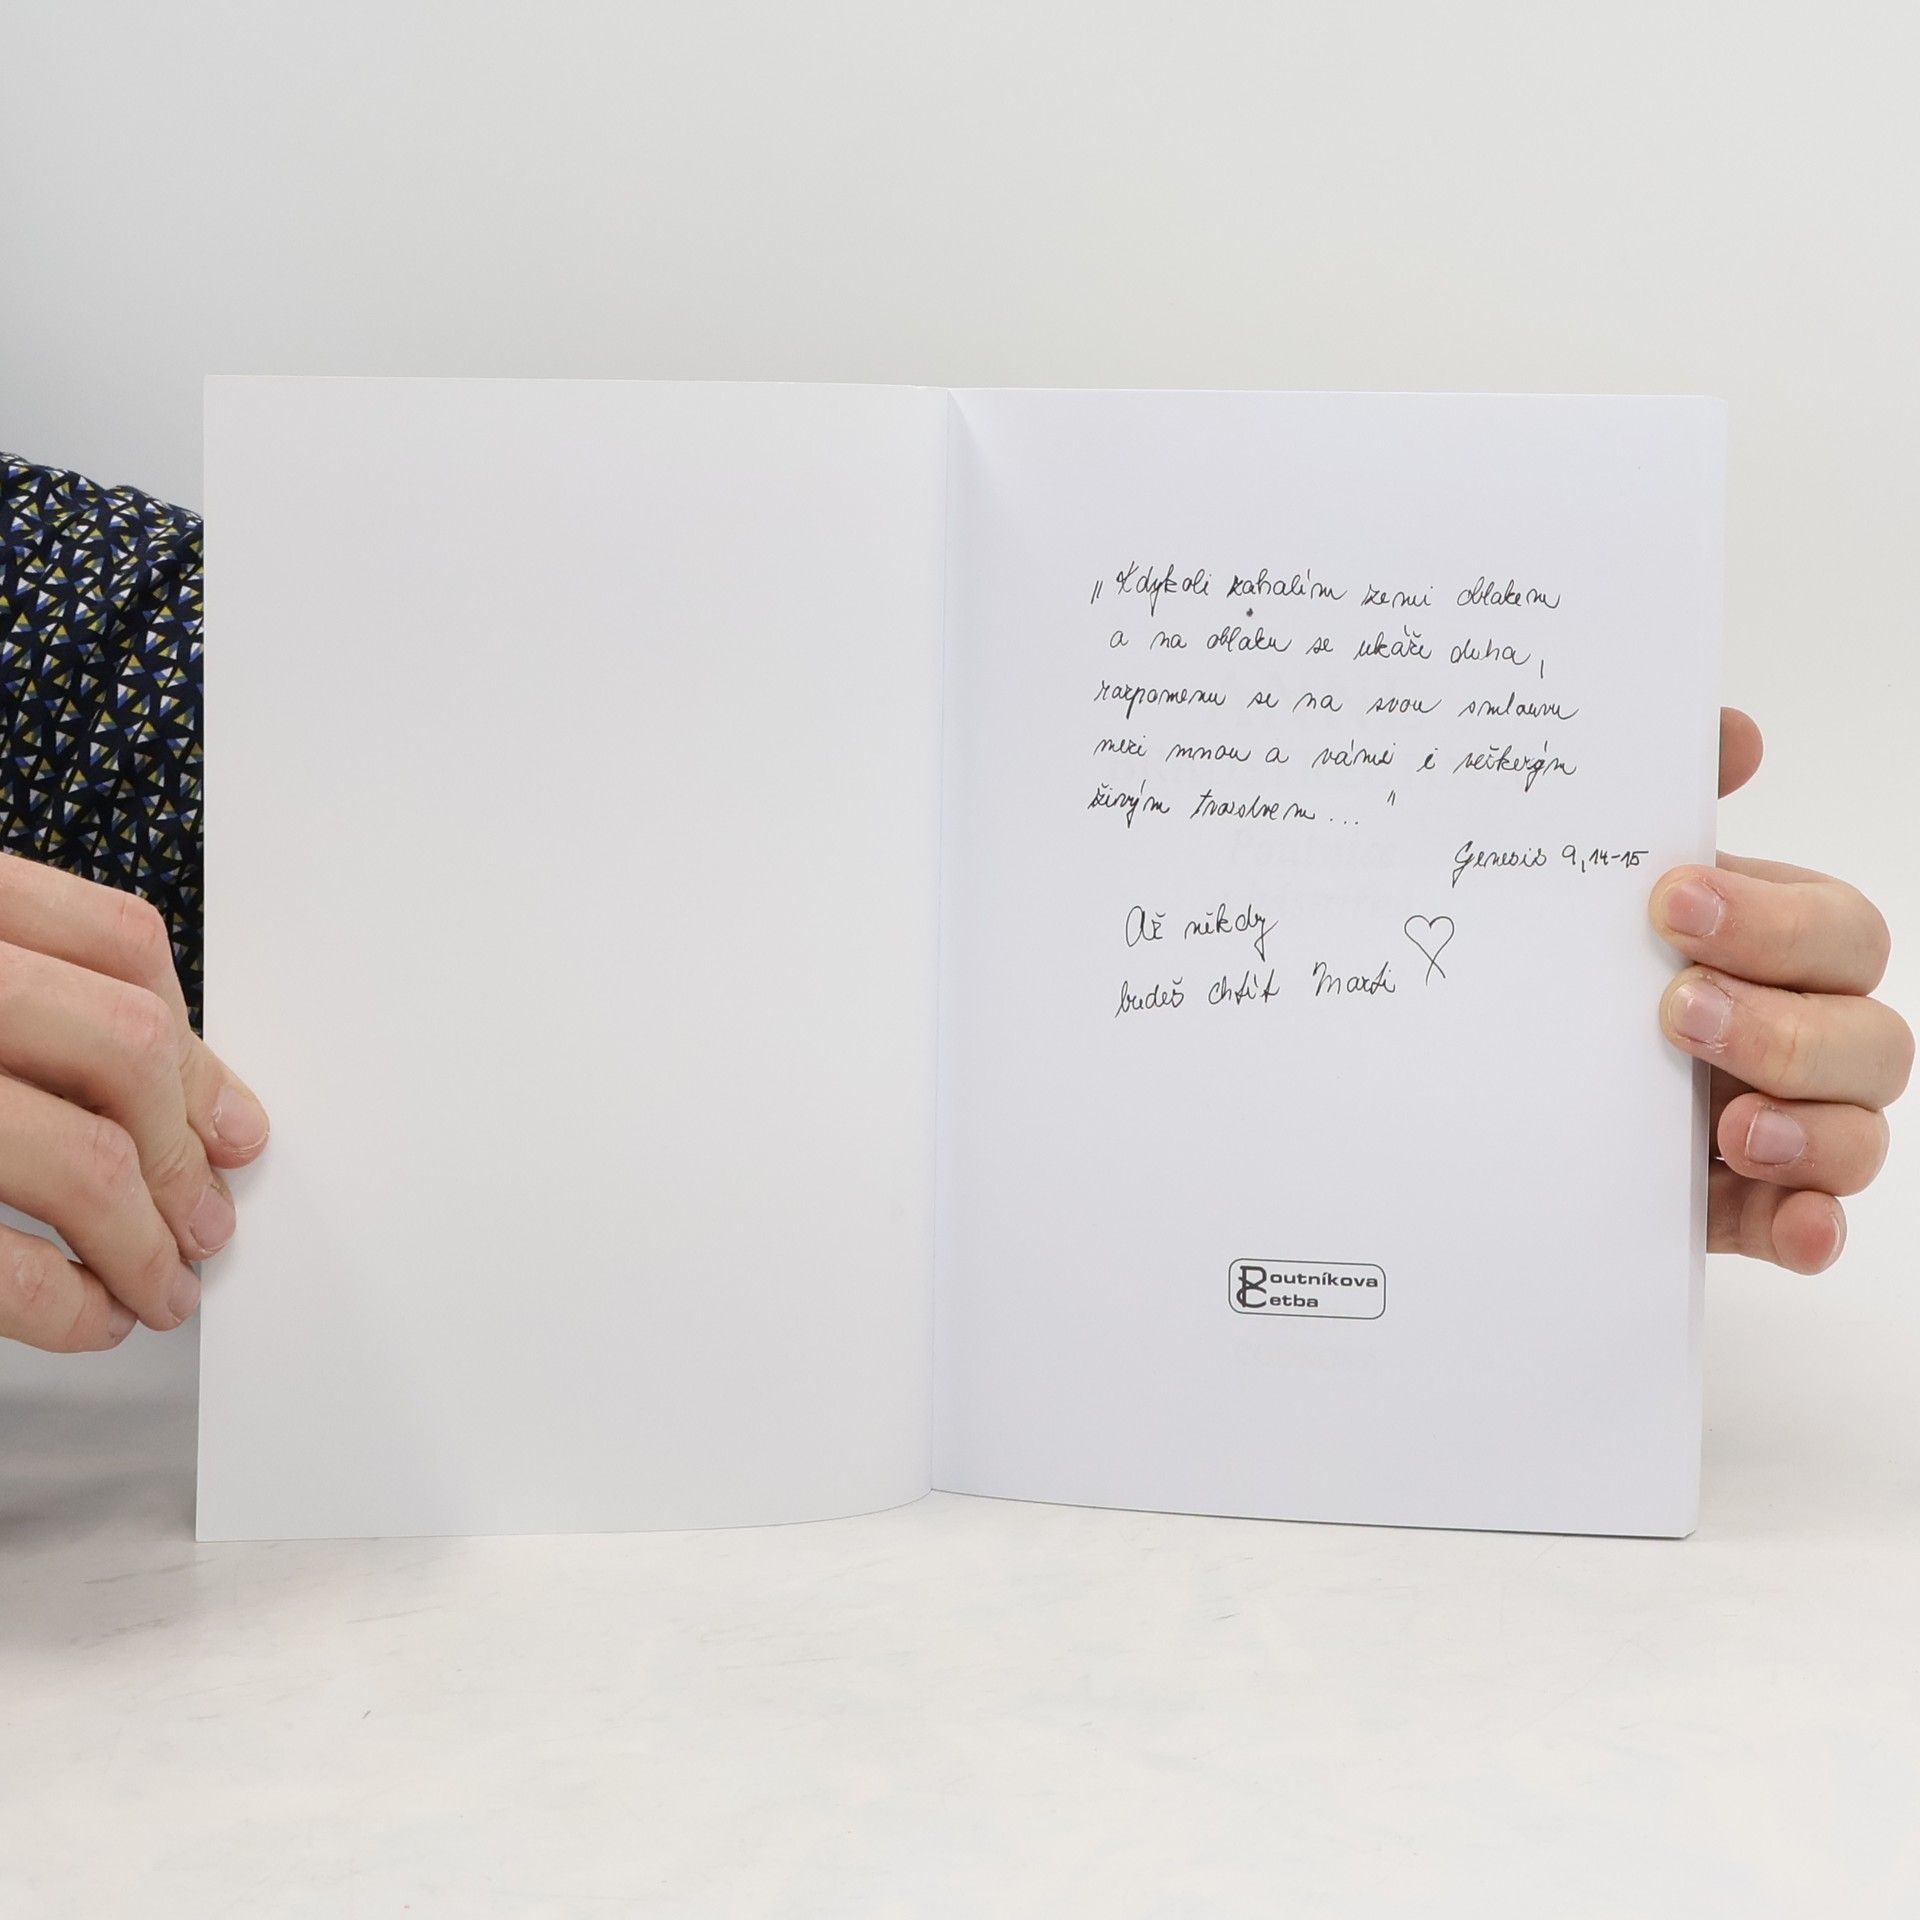 „Kdykoli zahalím zemi oblakem
a na oblaku se ukáže duha,
rozpomenu se na svou smlouvu
mezi mnou a vámi i veškerým
živým tvorstvem..."
Genesis 9,14-15
Až někdy
budeš chtít Marti
Poutníkova
Četba